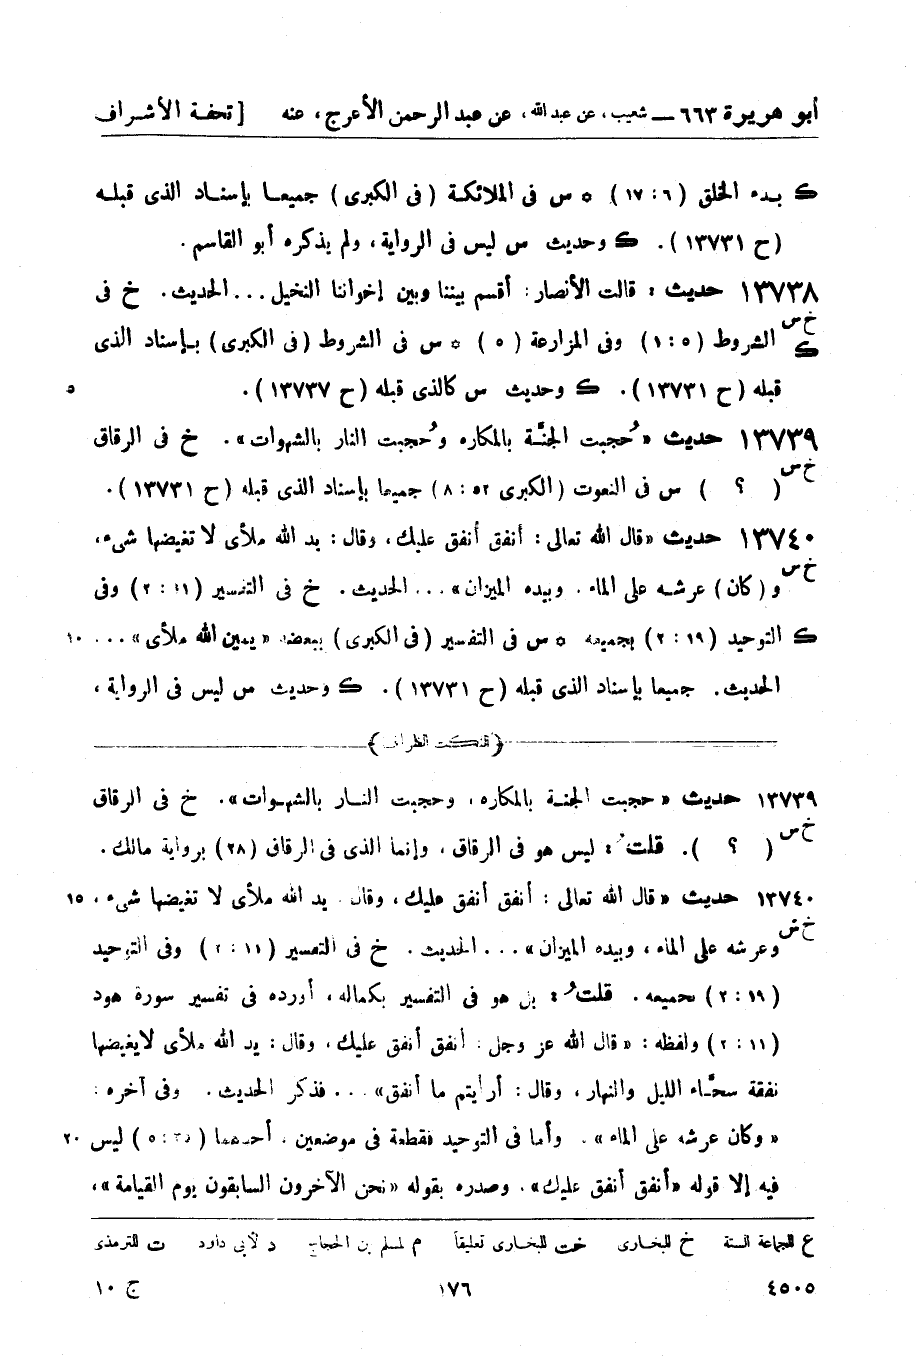 أبو هريرة ٦٦٣ — شعيب، عن عبد الله، عن عبد الرحمن الأعرج، عنه [تحفة الأشراف
ك بدء الخلق (٦ : ١٧) * س فى الملائكة (فى الكبرى) جميعا بإسناد الذى قبله
(ح ١٣٧٣١). ك وحديث س ليس فى الرواية، ولم يذكره أبو القاسم.
١٣٧٣٨ حديث : قالت الأنصار: أقسم بيننا وبين إخواننا النخيل... الحديث. خ فى
خ س
ك الشروط (٥ : ١) وفى المزارعة (٥) * س فى الشروط (فى الكبرى) بإسناد الذى
قبله (ح ١٣٧٣١). ك وحديث س كالذى قبله (ح ١٣٧٣٧). ٥
١٣٧٣٩ حديث «حُجبت الجنَّة بالمكاره وحُجبت النار بالشهوات». خ فى الرقاق
خ س
( ؟ ) س فى النعوت (الكبرى ٥٢ : ٨) جميعا بإسناد الذى قبله (ح ١٣٧٣١).
١٣٧٤٠ حديث «قال الله تعالى: أنفق أنفق عليك، وقال: يد الله ملأى لا تغيضها شىء،
خ س
و(كان) عرشه على الماء. وبيده الميزان»... الحديث. خ فى التفسير (١١ : ٢) وفى
ك التوحيد (١٩ : ٢) بجميعه * س فى التفسير (فى الكبرى) ببعضه «يمين الله ملأى»... ١٠
الحديث. جميعا بإسناد الذى قبله (ح ١٣٧٣١). ك وحديث س ليس فى الرواية،
﴿النكت الظراف﴾
١٣٧٣٩ حديث «حجبت الجنة بالمكاره، وحجبت النار بالشهوات». خ فى الرقاق
خ س
( ؟ ). قلتُ: ليس هو فى الرقاق، وإنما الذى فى الرقاق (٢٨) برواية مالك.
١٣٧٤٠ حديث «قال الله تعالى: أنفق أنفق عليك، وقال. يد الله ملأى لا تغيضها شىء، ١٥
خ س
وعرشه على الماء، وبيده الميزان»... الحديث. خ فى التفسير (١١ : ٢) وفى التوحيد
(١٩ : ٢) بجميعه. قلتُ: بل هو فى التفسير بكماله، أورده فى تفسير سورة هود
(١١ : ٢) ولفظه: «قال الله عز وجل: أنفق أنفق عليك، وقال: يد الله ملأى لايغيضها
نفقة سحَّاء الليل والنهار، وقال: أرأيتم ما أنفق»... فذكر الحديث. وفى آخره:
«وكان عرشه على الماء». وأما فى التوحيد فقطعة فى موضعين. أحدهما ( : ٥) ليس ٢٠
فيه إلا قوله «أنفق أنفق عليك». وصدره بقوله «نحن الآخرون السابقون يوم القيامة»،
ع للجماعة الستة خ للبخارى خت للبخارى تعليقاً م لمسلم بن الحجاج د لأبى داود ت للترمذى
٤٥٠٥ ١٧٦ ج ١٠